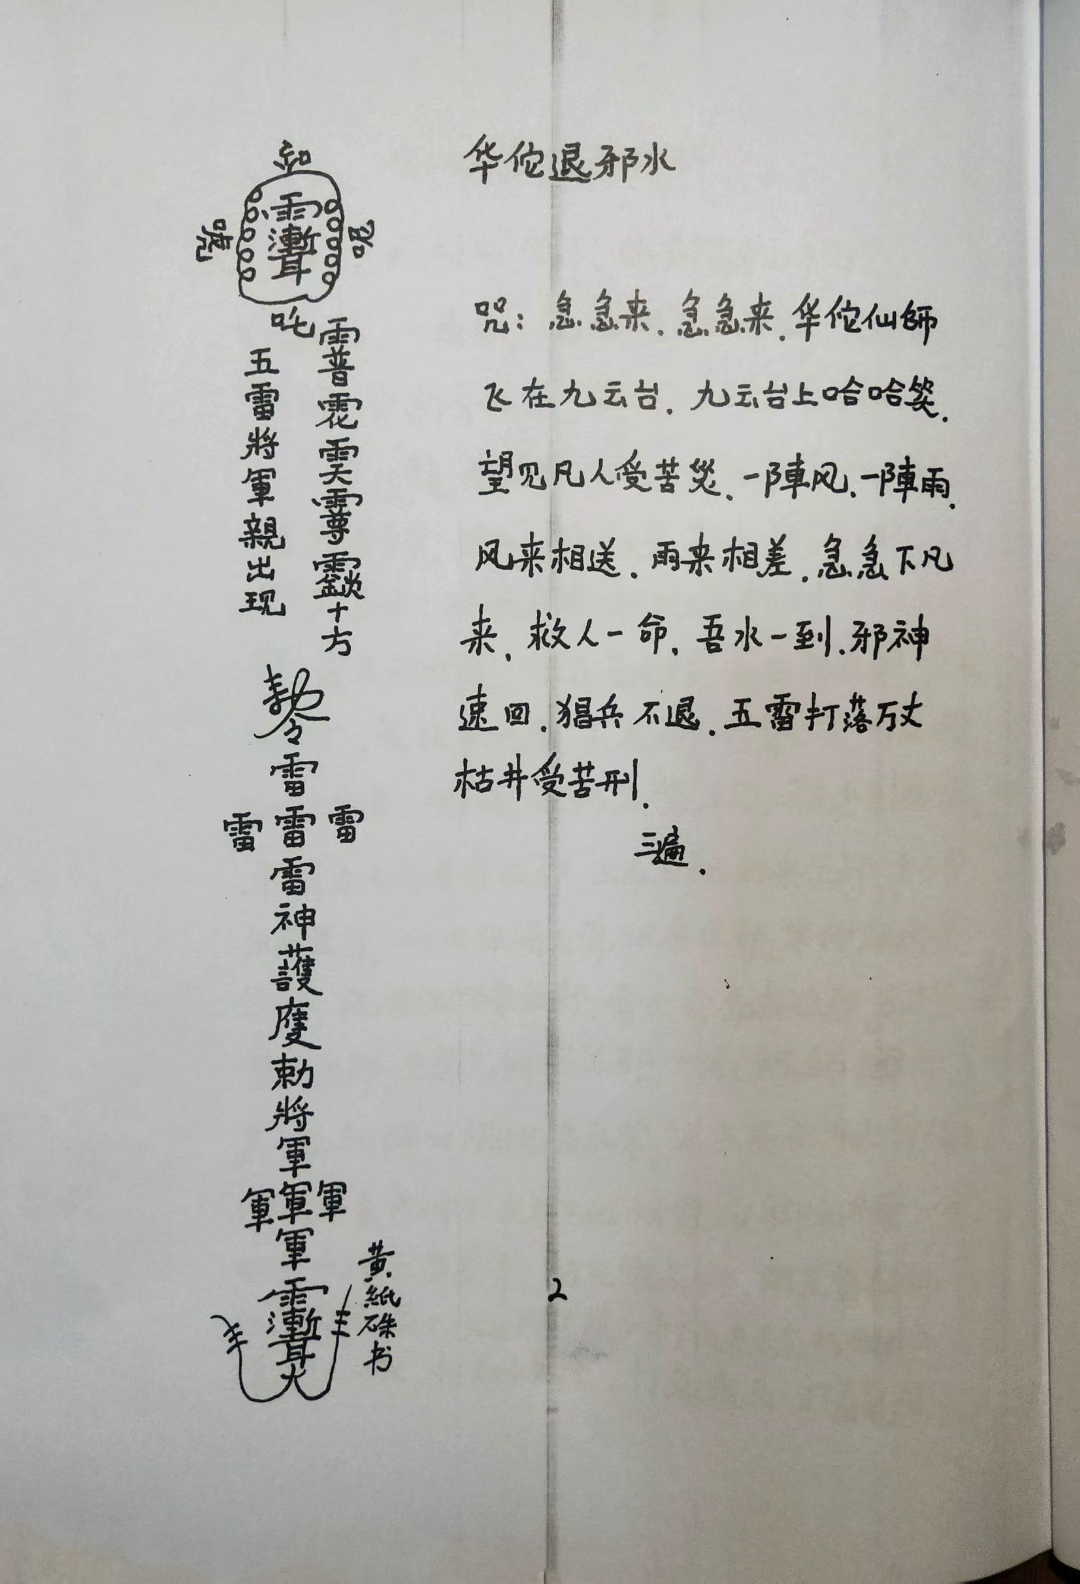 华佗退邪水
咒：急急来．急急来．华佗仙師
飞在九云台．九云台上哈哈笑．
望见凡人受苦災．一陣风．一陣雨．
风来相送．雨来相差．急急下凡
来．救人一命．吾水一到．邪神
速回．猖兵不退．五雷打落万丈
枯井受苦刑．
三遍．
唵
吽
五雷將軍親出现
十方
敕令
雷
雷雷雷
雷
神護
敕將
軍
軍軍軍
軍
黄紙硃书
2